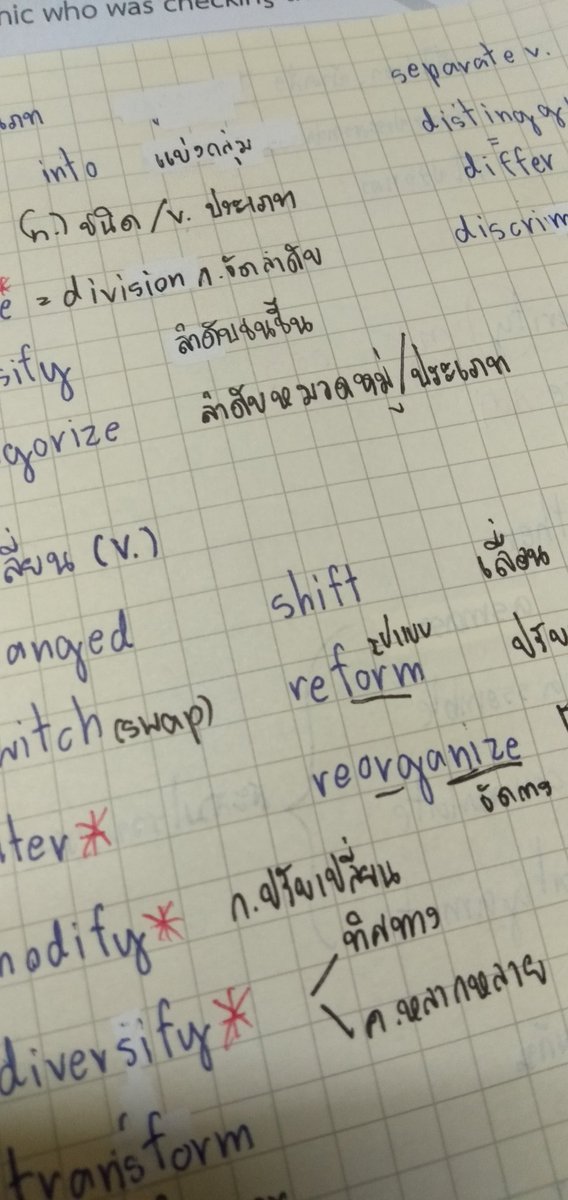 who was
separate v.
into แบ่งกลุ่ม
differ
(n.) ชนิด/v. ประเภท
discrim
= division ก.จัดลำดับ
sify ลำดับชนชั้น
gorize ลำดับหมวดหมู่/ประเภท
(v.)
anged shift เลื่อน
witch (swap) reform รูปแบบ ปรับ
ter* reorganize จัดการ
modify* ก.ปรับเปลี่ยน
diversify* ทิศทาง
ค.หลากหลาย
transform